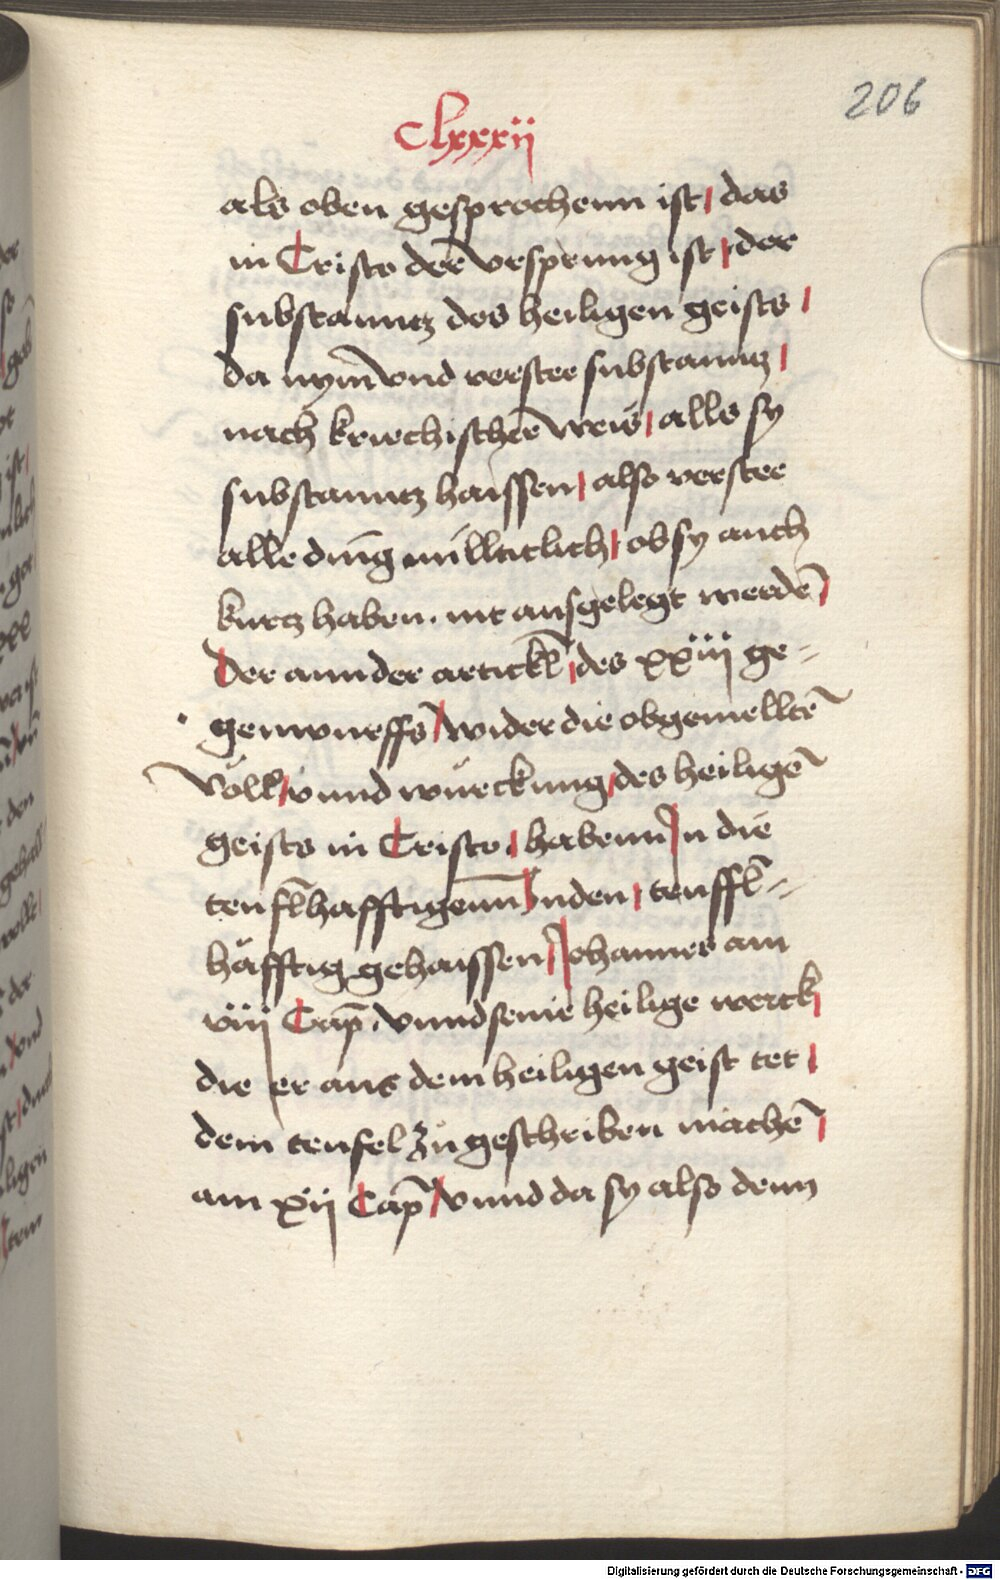 206
Clxxxii
als oben gesprochenn ist / das
in Cristo der vrsprung ist / der
substanntz des heiligen geists /
da nym̄ vnd verstee substanntz /
nach kriechischer weis / alls sy
substanntz haissen / also verstee
alle ding müllticlich / ob sy auch
kurtz haben . nit ausgelegt werdē /
Der annder artickl̄ / des xxiij ge=
genwurffs / wider die obgemelltē
völl / vnnd würckung / des heiligē
geists in Cristo / habenn Jn die
teuflhafftigenn Juden / teuffl=
häfftig gehaissen / Johannes am
viij Cap̄ . vnnd seine heilige werck /
die er aus dem heiligen geist tet /
dem teufel zügeschriben machē /
am xij Cap̄ / vnnd da sy also denn
Digitalisierung gefördert durch die Deutsche Forschungsgemeinschaft - DFG